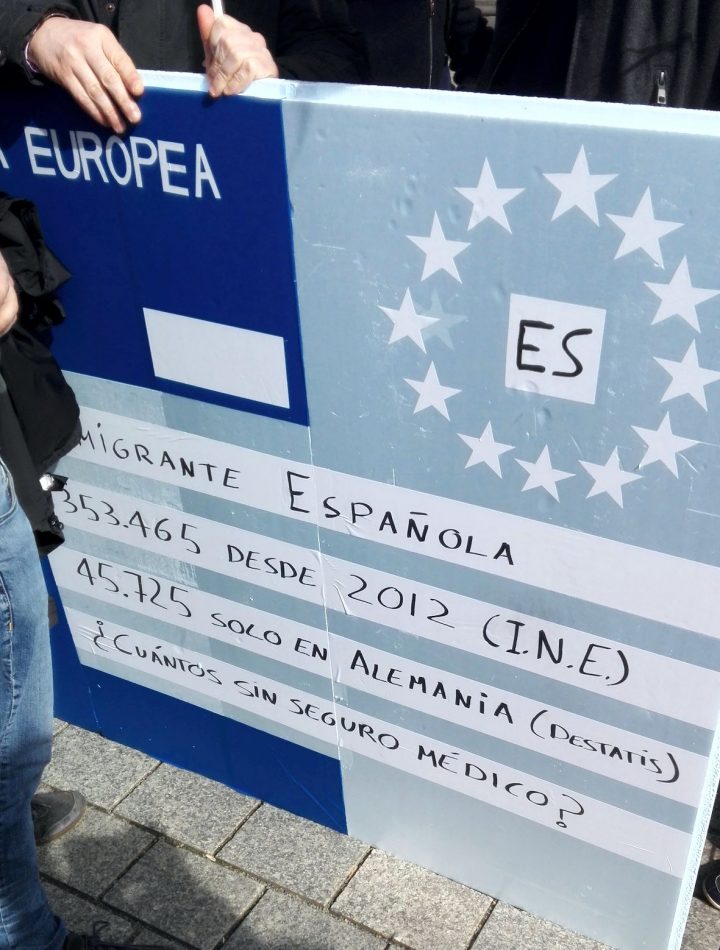 EUROPEA
ES
MIGRANTE ESPAÑOLA
353.465 DESDE 2012 (I.N.E.)
45.725 SOLO EN ALEMANIA (DESTATIS)
¿CUÁNTOS SIN SEGURO MÉDICO?